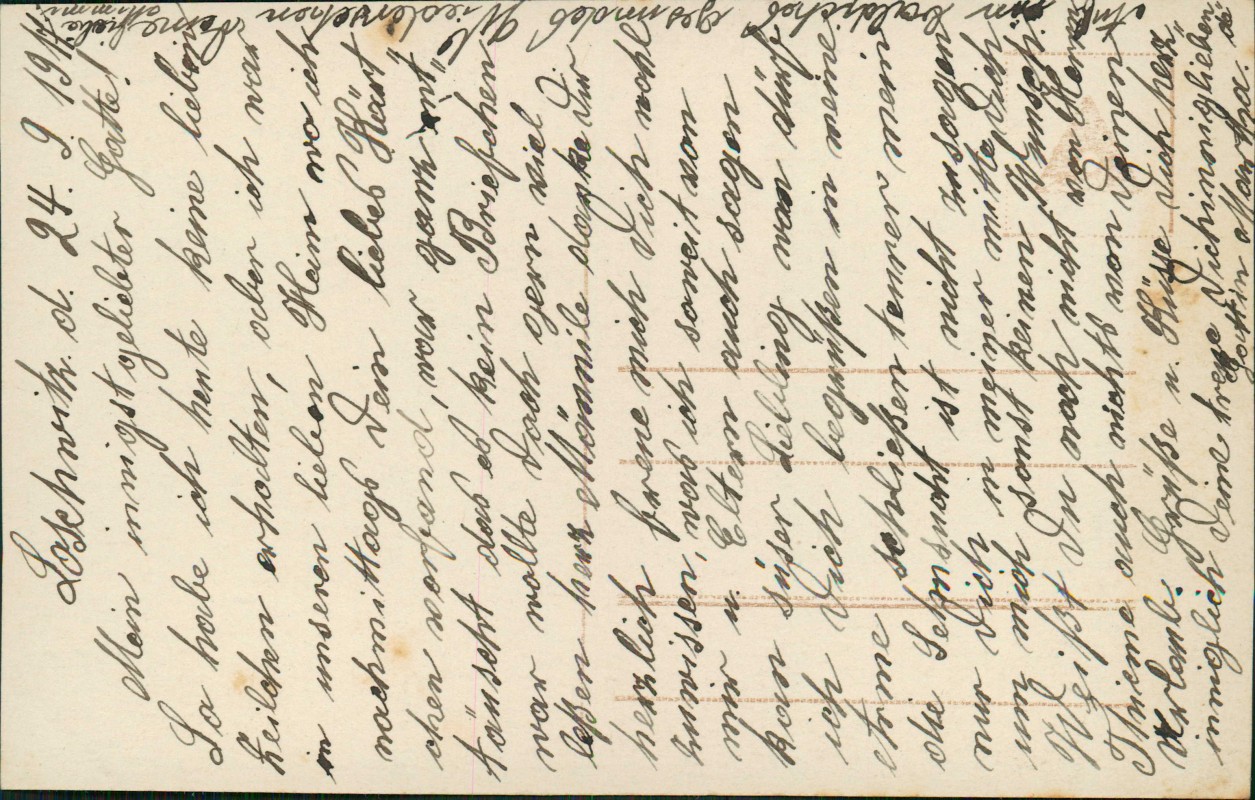 Loschwitz. d. 24. 9. 1917.
Mein innigstgeliebter Gatte!
So habe ich heute keine lieben
Zeilchen erhalten, aber ich war
in unseren lieben Heim wo ich
nachmittags Dein liebes Kärt
chen vorfand, war ganz ent,,
täuscht das es kein Briefchen
war wollte doch gern viel
leßen herz Mämmile danke Dir
herzlich freue mich Dich wohl
zuwissen, was ich soweit von
mir u. Eltern auch sagen
kan süser Liebling wan dürf
ich Dich begrüßen u meine
Arme schließen temmer immer
die Sehnsucht ist nicht zusagen
nur Dich in meiner mitte Dich
um mich sonst keinen Wunsch
Weißt Du noch nicht von Herrn
Thieme auch nichts von Deinen
Urlaub. Grüße u. Küsse Dich herz
inniglich Deine treue Dich innigliebende
Gattin Martha.
Auf ein baldiches gesundes Wiedersehen